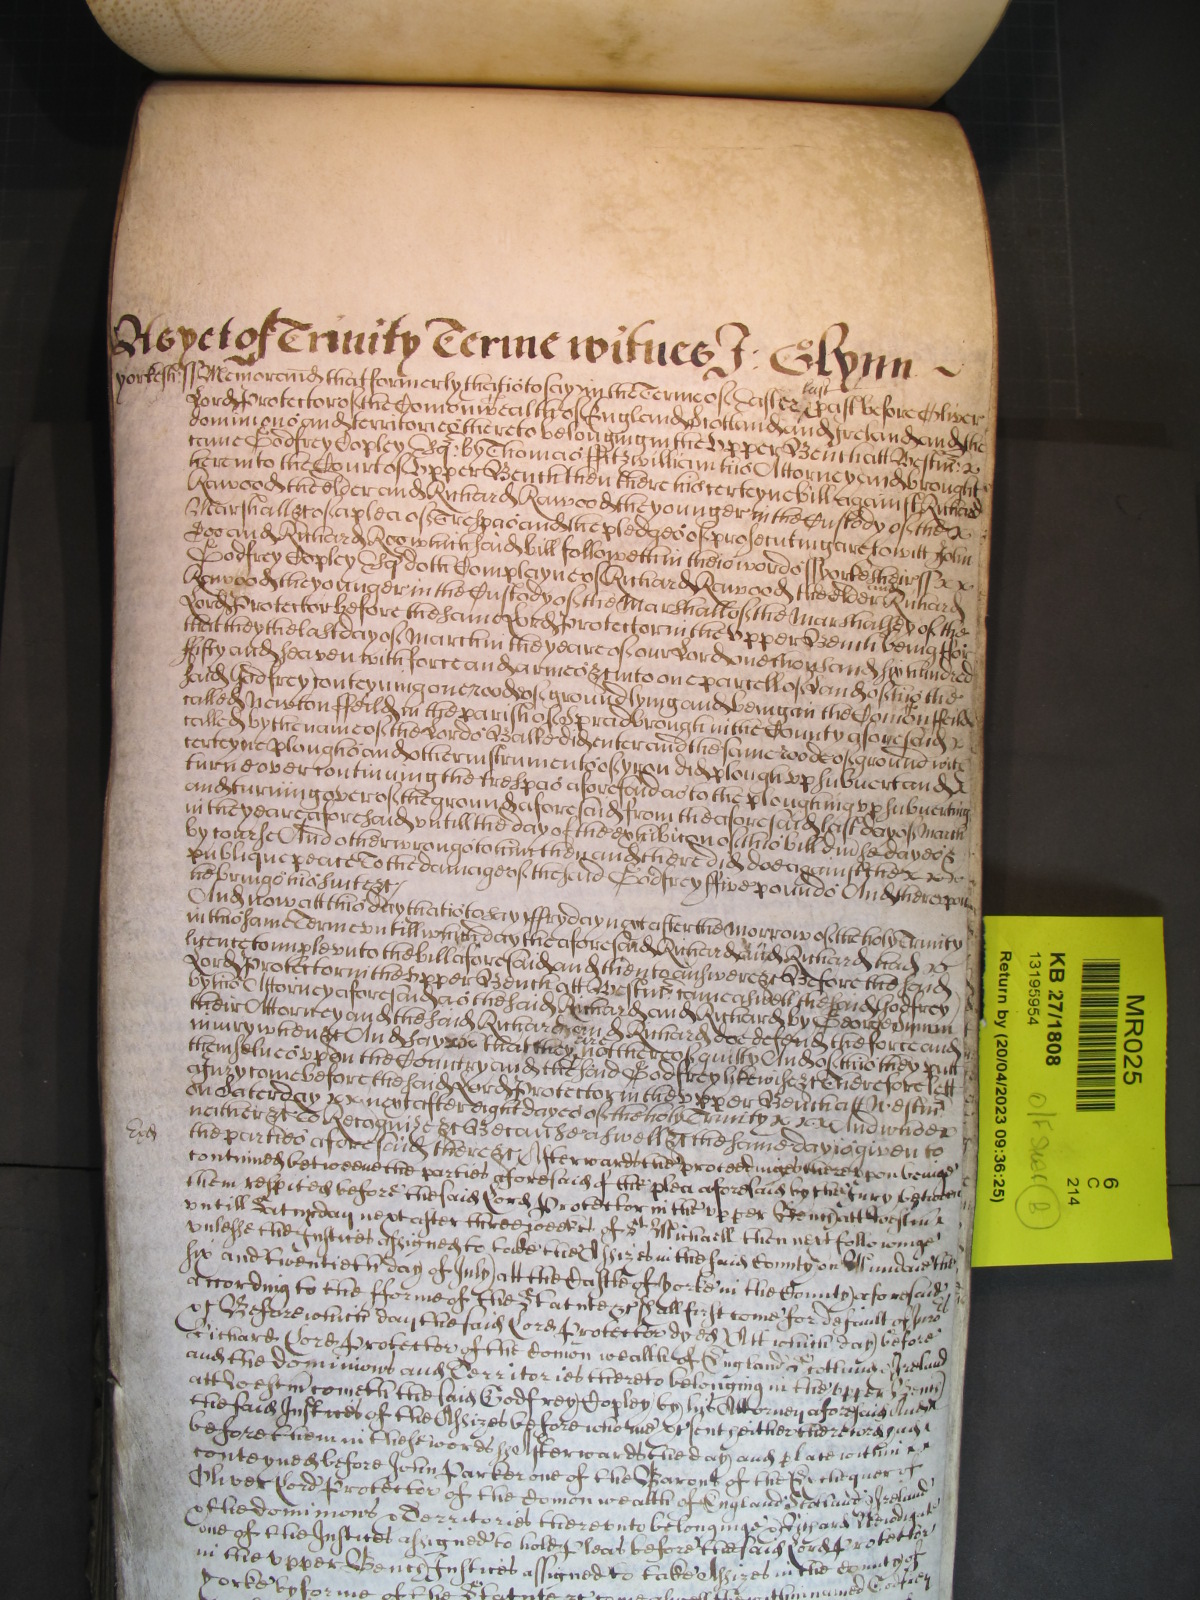 As yet of Trinity Terme witnes J: Glynn
yorksh: ss Memorand that formerly that is to say in the Terme of Easter last past before Oliver
Lord Protector of the Comonwealth of England Scotland and Ireland and the
dominions and territories thereto belonging in the Upper Bench att Westmr x
came Godfrey Copley Esq: by Thomas Fitzwilliam his Attorney and brought
here into the Court of Upper Bench then there his certeyne bill against Richard
Rawood the elder and Richard Rawood the younger in the Custody of the x
Marshall &c of a plea of Trespas and the pledges of prosecuting are to witt John
Doo and Richard Roo which said bill followeth in theis words ss yorkesheir ss x x
Godfrey Copley Esq doth Complayne of Richard Rawood the elder and Richard
Rawood the younger in the Custody of the Marshall of the Marshallsey of the
Lord Protector before the same Lord Protector in the Upper Bench being for
that they the last day of March in the yeare of our Lord one thousand six hundred
fifty and seaven with force and armes &c into one parcell of Land of his the
said Godfrey conteyning one rood of ground lying and being in the Comon feild
called Newton ffeild in the parish of Spradbrough in the County aforesaid x
called by the name of the Lords Balke did enter and the same roode of ground with
certeyne ploughs and other instruments of yron did plough upp subvert and x
turne over continuing the trespas aforesaid as to the ploughing upp subverting
and turning over of the ground aforesaid from the aforesaid last day of March
in the yeare aforesaid untill the day of the exhibicon of this bill divse dayes
by course And other wrongs to him then and there did doe against the x x x
publique peace To the damage of the said Godfrey ffive pounds And thereupon
he brings his suite &c
And now att this day that is to say ffryday next after the morrow of the holy Trinity
in this same Terme untill which day the aforesaid Richard and Richard had x
licence to imple unto the bill aforesaid and then to answere &c Before the said
Lord Protector in the Upper Bench att Westmr came aswell the said Godfrey
by his Attorney aforesaid as the said Richard and Richard by George
their Attorney and the said Richard and Richard doe defend the force and
iniury when &c And say that they are not thereof guilty And of this they putt
themselves upon the Countrey and the said Godfrey likewise &c Therefore lett
a Jury come before the said Lord Protector in the upper Bench att Westmr
on Saterday x x next after eight dayes of the holy Trinity x x x And who
neither &c To Recognize &c Because aswell &c the same day is given to
the parties aforesaid there &c Afterwards the proceedings thereupon beinge
continued betweene the parties aforesaid of the plea aforesaid by the Jury betweene
them respited before the said Lord Protector in the upper Bench att Westmr
untill Saturday next after three weekes of St Michaell then next followinge
unlesse the Justices assigned to take the Assizes in the said County on Munday the
six and twentieth day of July att the Castle of Yorke in the County aforesaid
according to the fforme of the Statute &c shall first come for default of Juro
rs Before which day the said Lord Protector dyed Att which day before
Richard Lord Protector of the Comon wealth of England Scotland Ireland
and the dominions and Territories thereto belonging in the upper Bench
att Westmr cometh the said Godfrey Copley by his Attorney aforesaid And
the said Justices of the Assizes before whome &c sent hither there record had
before them in these words ss Afterwards the day and place within x x
conteyned before John Parker one of the Barons of the Exchequer of
Oliver Lord Protector of the Comon wealth of England Scotland Ireland
& the dominions & Territories thereunto belonginge & Richard Newdigate
one of the Justices assigned to hold Pleas before the said Lord Protector
in the upper Bench Justices assigned to take Assizes in the County of
Yorke by forme of the Statute &c came aswell the within named Godfrey
MR025
6
C
214
KB 27/1808
13195954
Return by (20/04/2023 09:36:25)
B